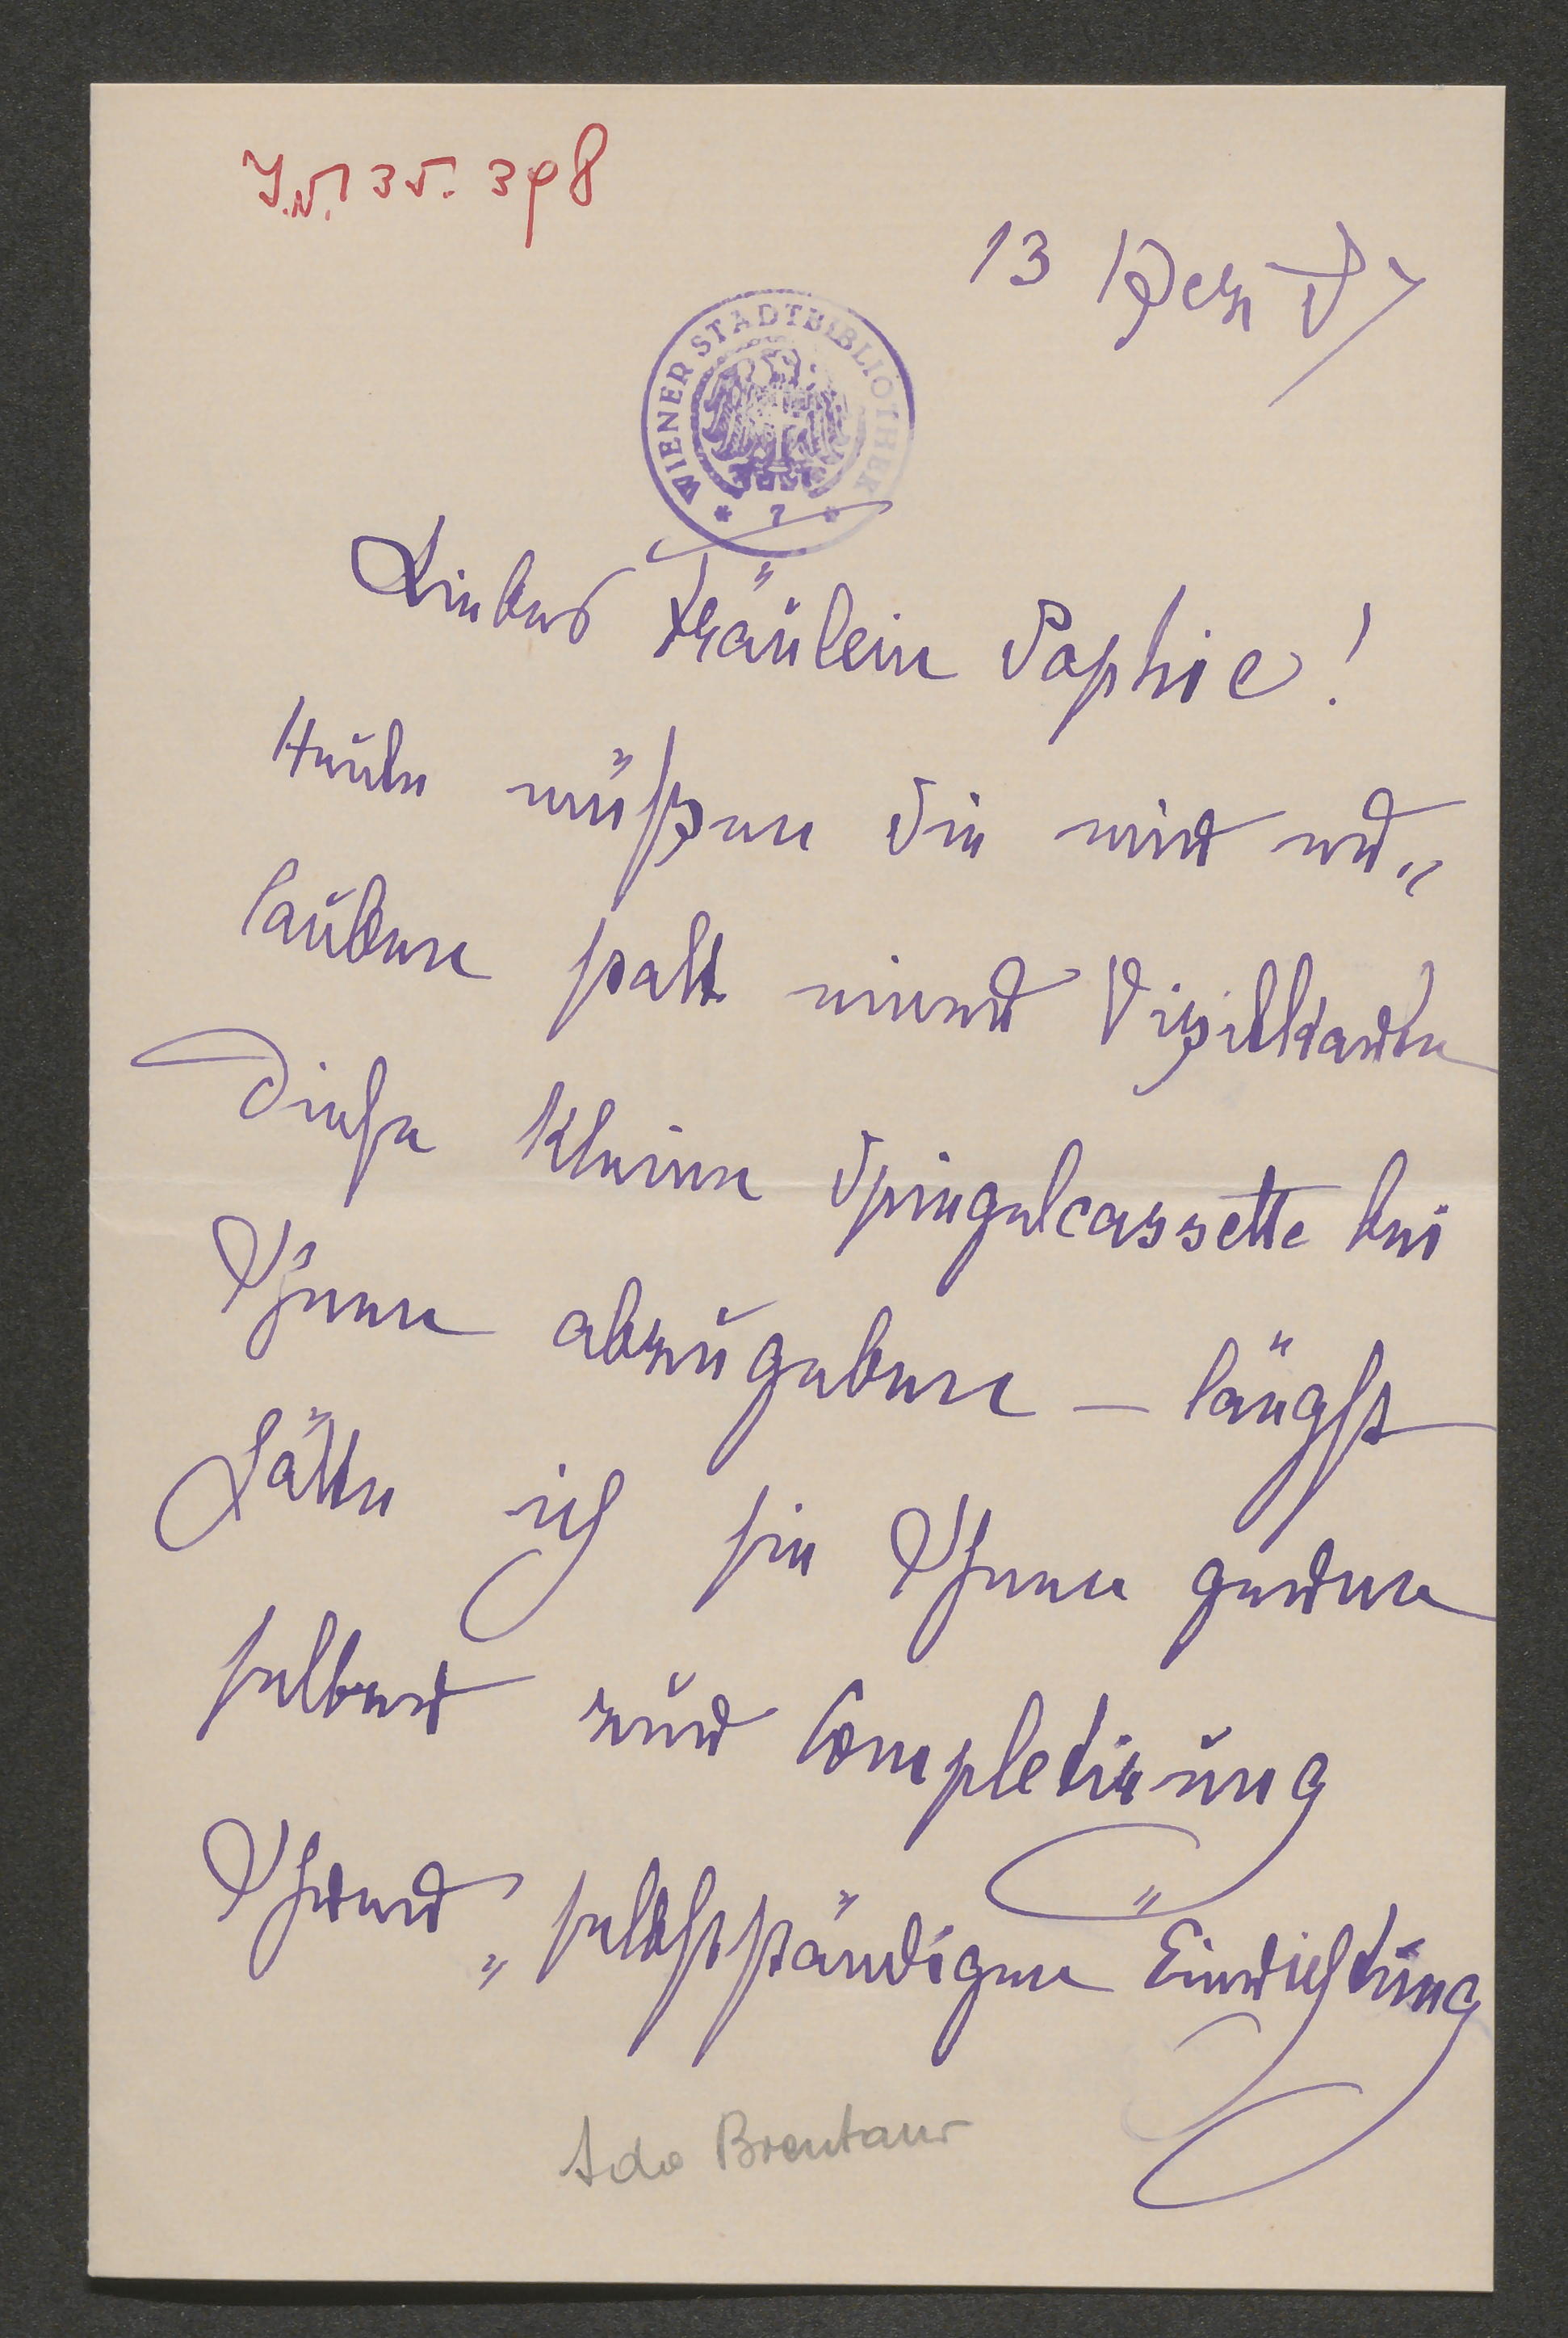 J.N. 135.398
13 Dez 87
WIENER STADTBIBLIOTHEK
* 7 *
Liebes Fräulein Sophie!
Heute müßen Sie mir er„
lauben statt einer Visitkarte
diese kleine Spiegelcassette bei
Ihnen abzugeben – längst
hätte ich sie Ihnen gerne
selber zur Completirung
Ihrer „selbstständigen" Einrichtung
Ida Brentano